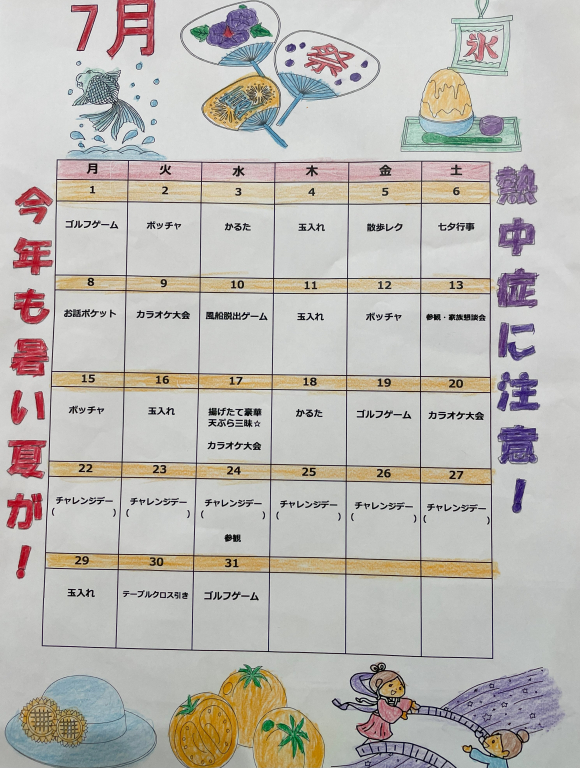 7月
祭
氷
今年も暑い夏が!
熱中症に注意!
月 火 水 木 金 土
1 2 3 4 5 6
ゴルフゲーム ボッチャ かるた 玉入れ 散歩レク 七夕行事
8 9 10 11 12 13
お話ポケット カラオケ大会 風船脱出ゲーム 玉入れ ボッチャ 参観・家族懇談会
15 16 17 18 19 20
ボッチャ 玉入れ 揚げたて豪華 かるた ゴルフゲーム カラオケ大会
天ぷら三昧☆
カラオケ大会
22 23 24 25 26 27
チャレンジデー チャレンジデー チャレンジデー チャレンジデー チャレンジデー チャレンジデー
( ) ( ) ( ) ( ) ( ) ( )
参観
29 30 31
玉入れ テーブルクロス引き ゴルフゲーム